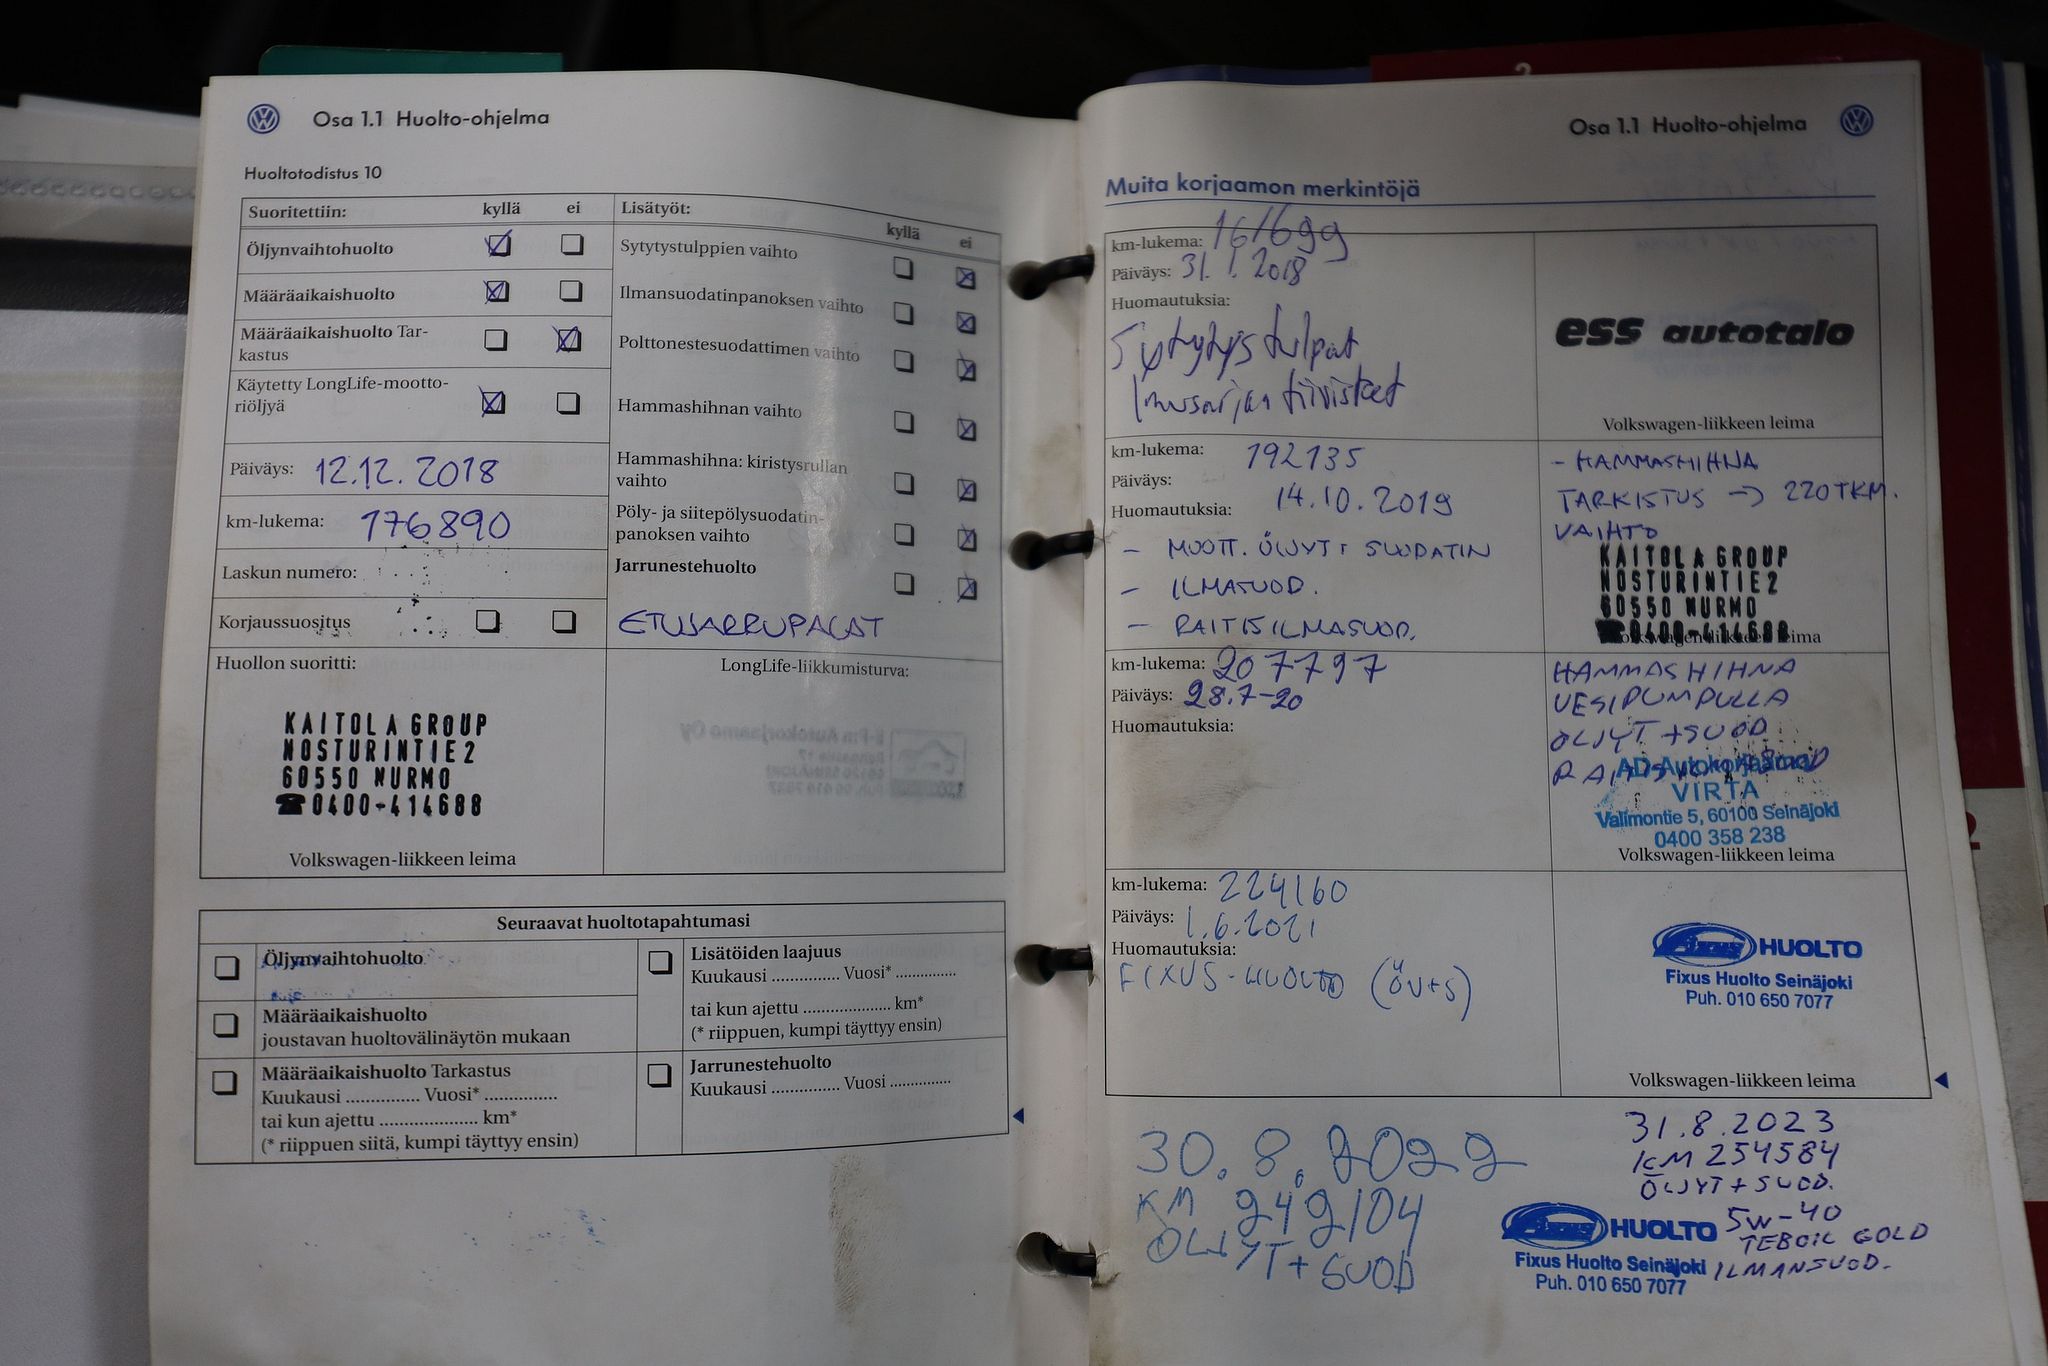 Osa 1.1 Huolto-ohjelma
Huoltotodistus 10
Suoritettiin: kyllä ei
Öljynvaihtohuolto
Määräaikaishuolto
Määräaikaishuolto Tar-
kastus
Käytetty LongLife-mootto-
riöljyä
Päiväys: 12.12.2018
km-lukema: 176890
Laskun numero:
Korjaussuositus
Lisätyöt: kyllä ei
Sytytystulppien vaihto
Ilmansuodatinpanoksen vaihto
Polttonestesuodattimen vaihto
Hammashihnan vaihto
Hammashihna: kiristysrullan
vaihto
Pöly- ja siitepölysuodatin-
panoksen vaihto
Jarrunestehuolto
ETUJARRUPALAT
Huollon suoritti:
KAITOLA GROUP
NOSTURINTIE2
60550 NURMO
☎0400-414688
Volkswagen-liikkeen leima
LongLife-liikkumisturva:
Seuraavat huoltotapahtumasi
Öljynvaihtohuolto
Määräaikaishuolto
joustavan huoltovälinäytön mukaan
Määräaikaishuolto Tarkastus
Kuukausi ............... Vuosi* ................
tai kun ajettu ..................... km*
(* riippuen siitä, kumpi täyttyy ensin)
Lisätöiden laajuus
Kuukausi .............. Vuosi* ..............
tai kun ajettu ................... km*
(* riippuen, kumpi täyttyy ensin)
Jarrunestehuolto
Kuukausi .............. Vuosi ..............
Osa 1.1 Huolto-ohjelma
2
Muita korjaamon merkintöjä
km-lukema: 161699
Päiväys: 31.1.2018
Huomautuksia:
Sytytystulpat
Imusarjan tiivisteet
ess autotalo
Volkswagen-liikkeen leima
km-lukema: 192135
Päiväys:
14.10.2019
Huomautuksia:
- MOOTT. ÖLJYT + SUODATIN
- ILMASUOD.
- RAITISILMASUOD.
- HAMMASHIHNA
TARKISTUS -> 220TKM.
VAIHTO
KAITOLA GROUP
NOSTURINTIE2
60550 NURMO
☎0400-414688
Volkswagen-liikkeen leima
km-lukema: 207797
Päiväys: 28.7-20
Huomautuksia:
HAMMASHIHNA
VESIPUMPULLA
ÖLJYT + SUOD
AD Autokorjaamo
VIRTA
Valimontie 5, 60100 Seinäjoki
0400 358 238
Volkswagen-liikkeen leima
km-lukema: 224160
Päiväys: 1.6.2021
Huomautuksia:
FIXUS-HUOLTO (ÖV+S)
Fixus HUOLTO
Fixus Huolto Seinäjoki
Puh. 010 650 7077
Volkswagen-liikkeen leima
30.8.2022
KM 242104
ÖLJYT + SUOD
31.8.2023
KM 254584
ÖLJYT + SUOD.
5W-40
TEBOIL GOLD
ILMANSUOD.
Fixus HUOLTO
Fixus Huolto Seinäjoki
Puh. 010 650 7077